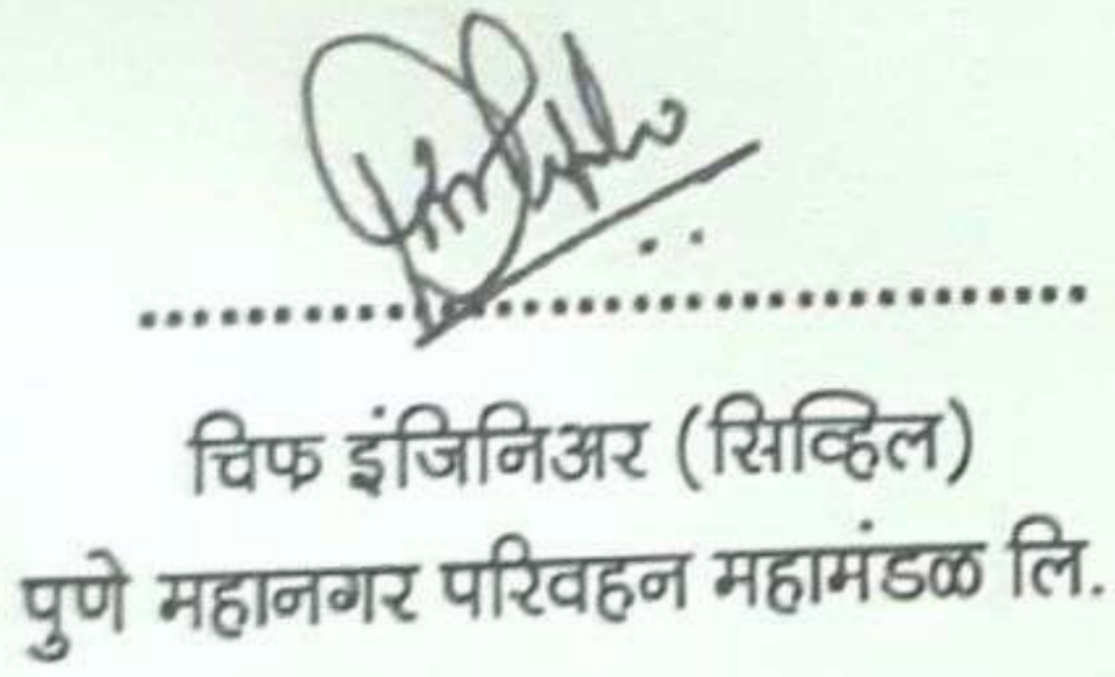 चिफ इंजिनिअर (सिव्हिल)
पुणे महानगर परिवहन महामंडळ लि.